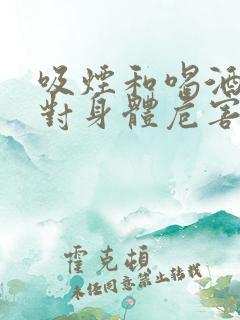 吸煙和喝酒
對身體危害
霍克頓
未經同意禁止轉載